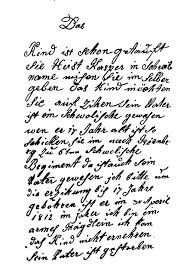 Das
Kind ist schon getauft
Sie Heist Kasper in Schreib
name misen Sie im Selber
geben Das Kind möchten
Sie auf Zihen Sein Vater
ist ein Schwolische gewesen
wen er 17 Jahr alt ist so
Schicken sie im nach Nirenberg
zu 6ten Schwolische
Regiment da ist auch sein
Vater gewesen ich bitte um
die erzihung bis 17 Jahre
gebohren ist er im 30 Aperil
1812 im Jahr ich bin ein
armes Mägdlein ich kan
das Kind nicht ernehren
Sein Vater ist gestorben